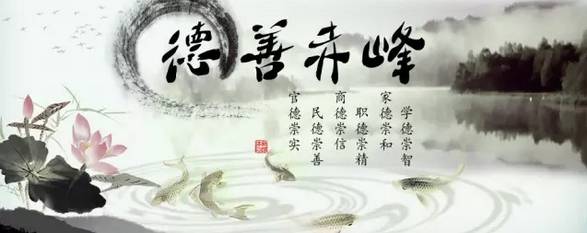 德善赤峰
学德崇智
家德崇和
职德崇精
商德崇信
民德崇善
官德崇实